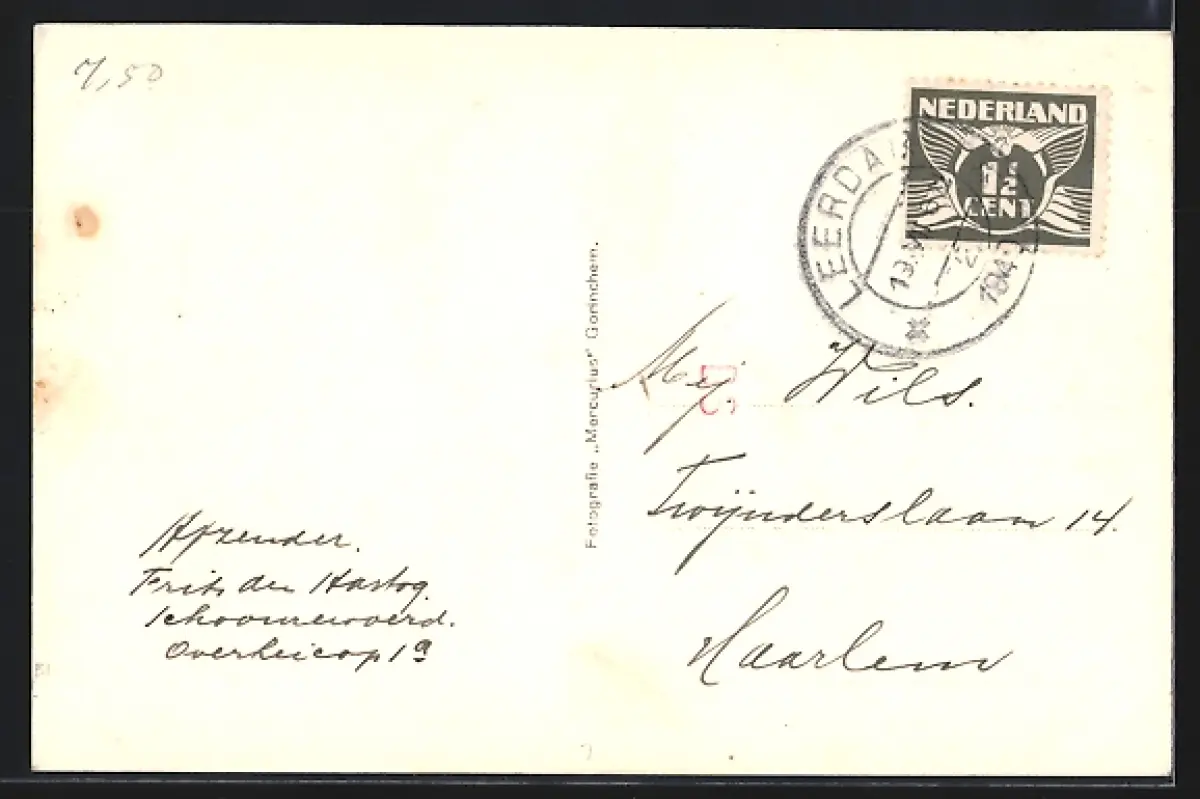 7,50
NEDERLAND
1½
CENT
LEERDAM
Fotografie „Mercurius" Gorinchem.
Mej. Wils.
Twijnderslaan 14.
Haarlem
Afzender.
Frits den Hartog.
Schoonrewoerd.
Overheicop 1a